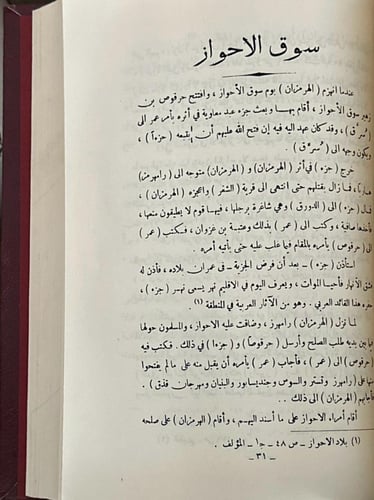 سوق الاحواز
عندما انهزم ( الهرمزان ) يوم سوق الأحواز ، وافتتح حرقوص بن
زهير سوق الأحواز ، أقام بهـا وبعث جزء عبد معاوية في أثره بأمر عمر الى
( سرّق ) ، وقد كان عهد اليه فيه إن فتح الله عليهم أن يتبعه ( جزءاً ) ،
ويكون وجهه الى ( سرّق ) .
خرج ( جزء ) في أثر ( الهرمزان ) و ( الهرمزان ) متوجه الى ( رامهرمز )
هاربـاً ، فمـا زال يقتلهم حتى انتهى الى قرية ( الشغر ) واعجزه ( الهرمزان ) ،
فمال ( جزء ) الى ( الدورق ) وهي شاغرة برجلها ، فيهـا قوم لا يطيقون منعها ،
فأخذها صافية ، وكتب الى ( عمر ) بذلك وعتبـة بن غزوان ، فـكتب ( عمر )
الى ( حرقوص ) يأمره بالمقام فيما غلب عليه حتى يأتيه أمره .
استأذن ( جزء ) ــ بعد أن فرض الجزيـة ــ فى عمران بلاده ، فأذن له
فشق الأنهار فأحيـا الموات ، ويعرف اليوم في الاقليم نهر يسمى نهـر ( جزء ) ،
حفره هذا القائد العربي . وهو من الآثار العربية في المنطقة (١) .
لمـا نزل ( الهرمزان ) رامهرز ، وضاقت عليه الاحواز ، والمسلمون حولها
فيما بين يديه طلب الصلح وأرسل ( حرقوصاً ) و ( جزءا ) في ذلك . فكتب فيه
( حرقوص ) الى ( عمر ) ، فأجاب ( عمر ) يأمره أن يقبل منه على مالم يفتحوا
منها على ( رامهرز وتستر والسوس وجنديسابور والبنيان ومهرجان قذق ) .
فأجابهم ( الهرمزان ) الى ذلك ..
أقام أمراء الاحواز على ما أسند اليهـم ، وأقام ( الهرمزان ) على صلحه
(١) بلاد الاحواز ــ ص ٤٨ ــ جـ١ ــ المؤلف .
ــ ٣١ ــ